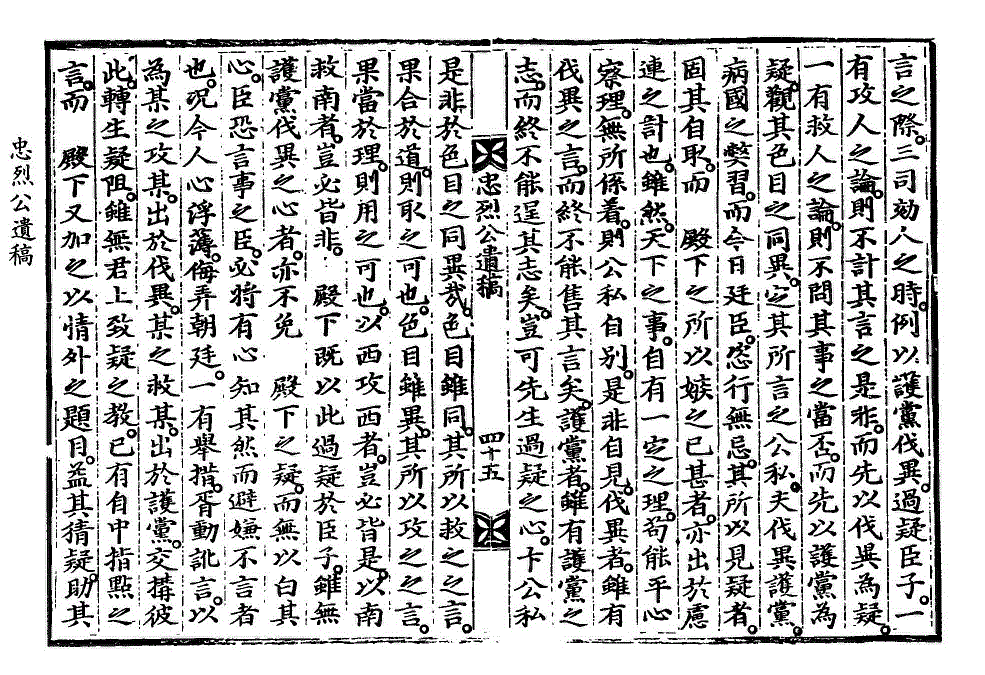 言之際。三司劾人之時。例以護黨伐異。過疑臣子。一
有攻人之論。則不計其言之是非。而先以伐異為疑。
一有救人之論。則不問其事之當否。而先以護黨為
疑。觀其色目之同異。定其所言之公私。夫伐異護黨。
病國之弊習。而今日廷臣。恣行無忌。其所以見疑者。
固其自取。而　殿下之所以嫉之已甚者。亦出於慮
連之計也。雖然。天下之事。自有一定之理。苟能平心
察理。無所係着。則公私自別。是非自見。伐異者。雖有
伐異之言。而終不能售其言矣。護黨者。雖有護黨之
志。而終不能逞其志矣。豈可先生過疑之心。卞公私
忠烈公遺稿
四十五
是非於色目之同異哉。色目雖同。其所以救之之言。
果合於道。則取之可也。色目雖異。其所以攻之之言。
果當於理。則用之可也。以西攻西者。豈必皆是。以南
救南者。豈必皆非。　殿下旣以此過疑於臣子。雖無
護黨伐異之心者。亦不免　殿下之疑。而無以白其
心。臣恐言事之臣。必將有心知其然而避嫌不言者
也。况今人心浮薄。侮弄朝廷。一有舉措。胥動訛言。以
為某之攻某。出於伐異。某之救某。出於護黨。交搆彼
此。轉生疑阻。雖無君上致疑之敎。已有自中指點之
言。而　殿下又加之以情外之題目。益其猜疑。助其
忠烈公遺稿